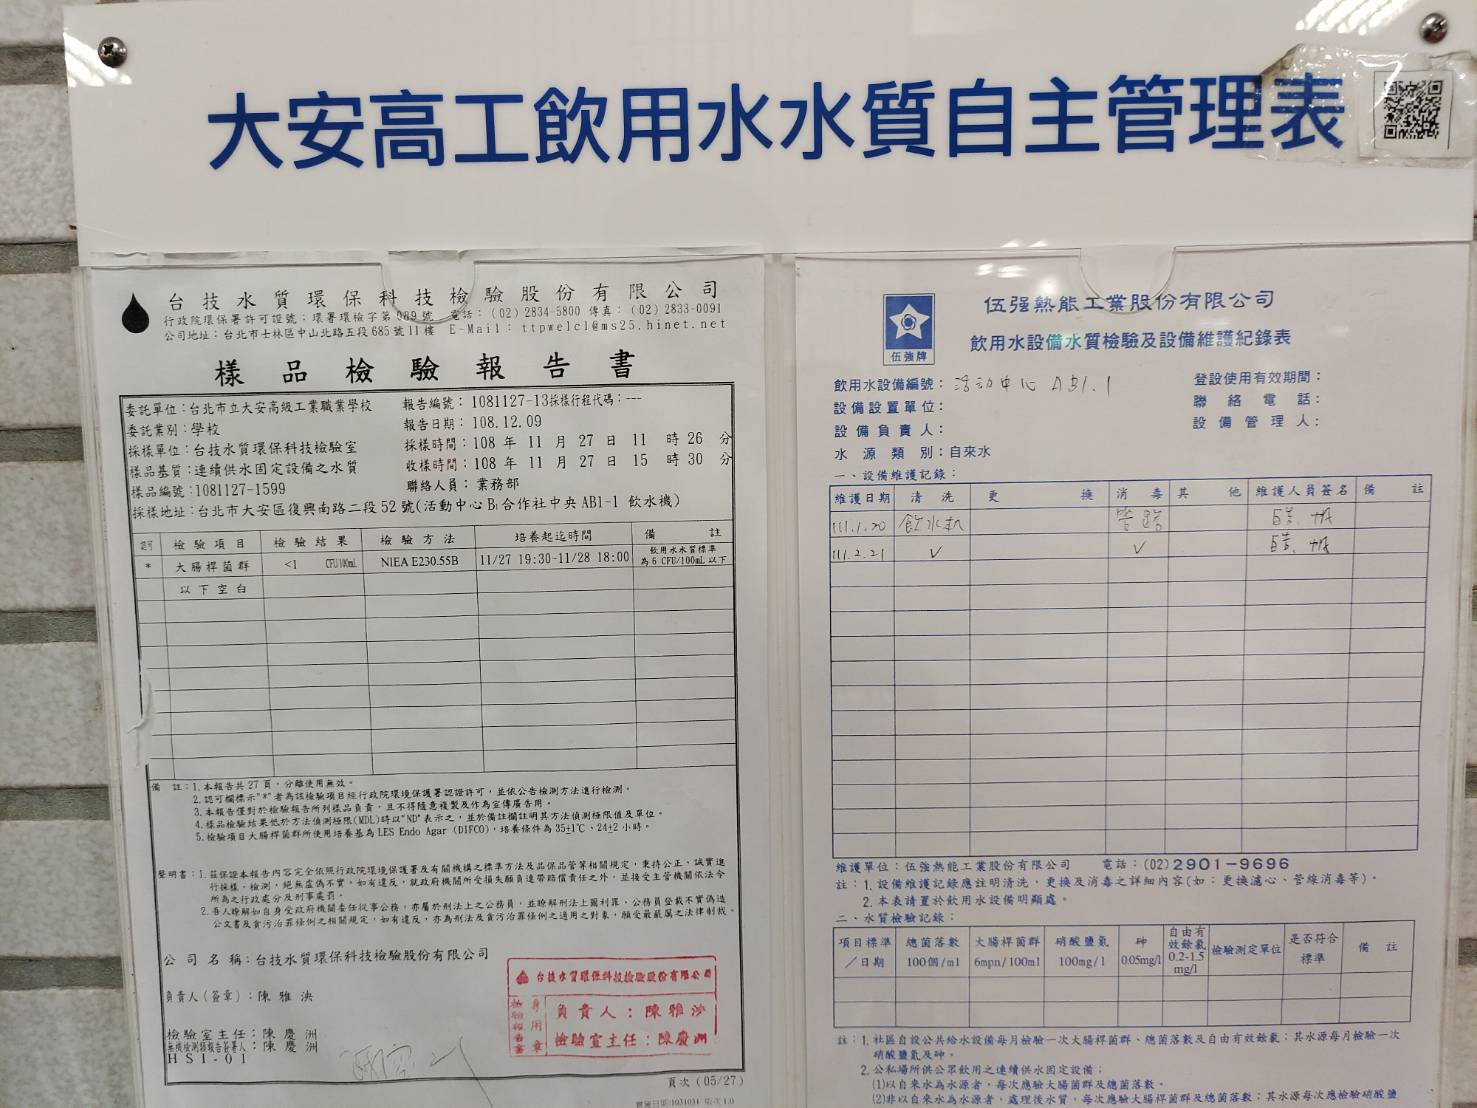 大安高工飲用水水質自主管理表
台技水質環保科技檢驗股份有限公司
行政院環保署許可證號：環署環檢字第089號 電話：(02) 2834-5800 傳真：(02) 2833-0091
公司地址：台北市士林區中山北路五段685號11樓 E-Mail: ttpwelcl@ms25.hinet.net
樣品檢驗報告書
委託單位：台北市立大安高級工業職業學校 報告編號：1081127-13採樣行程代碼：---
委託業別：學校 報告日期：108.12.09
採樣單位：台技水質環保科技檢驗室 採樣時間：108 年 11 月 27 日 11 時 26 分
樣品基質：連續供水固定設備之水質 收樣時間：108 年 11 月 27 日 15 時 30 分
樣品編號：1081127-1599 聯絡人員：業務部
採樣地址：台北市大安區復興南路二段52號(活動中心B1合作社中央AB1-1 飲水機)
認可 檢驗項目 檢驗結果 檢驗方法 培養起迄時間 備註
* 大腸桿菌群 <1 CFU/100mL NIEA E230.55B 11/27 19:30-11/28 18:00 飲用水水質標準為6 CFU/100mL以下
以下空白
備 註：1.本報告共27頁，分離使用無效。
2.認可欄標示"*"者為該檢驗項目經行政院環境保護署認證許可，並依公告檢測方法進行檢測。
3.本報告僅對於檢驗報告所列樣品負責，且不得隨意複製及作為宣傳廣告用。
4.樣品檢驗結果低於方法偵測極限(MDL)時以"ND"表示之，並於備註欄註明其方法偵測極限值及單位。
5.檢驗項目大腸桿菌群所使用培養基為LES Endo Agar (DIFCO)，培養條件為35±1℃、24±2小時。
聲明書：1.茲保證本報告內容完全依照行政院環境保護署及有關機構之標準方法及品保品管等相關規定，秉持公正、誠實進
行採樣、檢測，絕無虛偽不實。如有違反，就政府機關所受損失願負連帶賠償責任之外，並接受主管機關依法令
所為之行政處分及刑事處罰。
2.吾人瞭解如自身受政府機關委任從事公務，亦屬於刑法上之公務員，並瞭解刑法上圖利罪、公務員登載不實偽造
公文書及貪污治罪條例之相關規定，如有違反，亦為刑法及貪污治罪條例之適用之對象，願受最嚴厲之法律制裁。
公司名稱：台技水質環保科技檢驗股份有限公司
負責人(簽章)：陳雅泱
檢驗室主任：陳慶洲
無機檢測類報告簽署人：陳慶洲
HSI-01
台技水質環保科技檢驗股份有限公司
檢驗報告書專用章
負責人：陳雅泱
檢驗室主任：陳慶洲
頁次 (05/27)
伍強牌
伍强熱能工業股份有限公司
飲用水設備水質檢驗及設備維護紀錄表
飲用水設備編號：活动中心 AB1.1 登設使用有效期間：
設備設置單位： 聯絡電話：
設備負責人： 設備管理人：
水源類別：自來水
一、設備維護記錄：
維護日期 清洗 更換 消毒 其他 維護人員簽名 備註
111.1.20 飲水机 管路
111.2.21 ✓ ✓
維護單位：伍強熱能工業股份有限公司 電話：(02)2901-9696
註：1.設備維護記錄應註明清洗、更換及消毒之詳細內容(如：更換濾心、管線消毒等)。
2.本表請置於飲用水設備明顯處。
二、水質檢驗記錄：
項目標準／日期 總菌落數100個/ml 大腸桿菌群6mpn/100ml 硝酸鹽氮100mg/l 砷0.05mg/l 自由有效餘氯0.2-1.5mg/l 檢驗測定單位 是否符合標準 備註
註：1.社區自設公共給水設備每月檢驗一次大腸桿菌群、總菌落數及自由有效餘氯；其水源每月檢驗一次
硝酸鹽氮及砷。
2.公私場所供公眾飲用之連續供水固定設備：
(1)以自來水為水源者，每次應驗大腸菌群及總菌落數。
(2)非以自來水為水源者，處理後水質，每次應驗大腸桿菌群及總菌落數；其水源每次應檢驗硝酸鹽